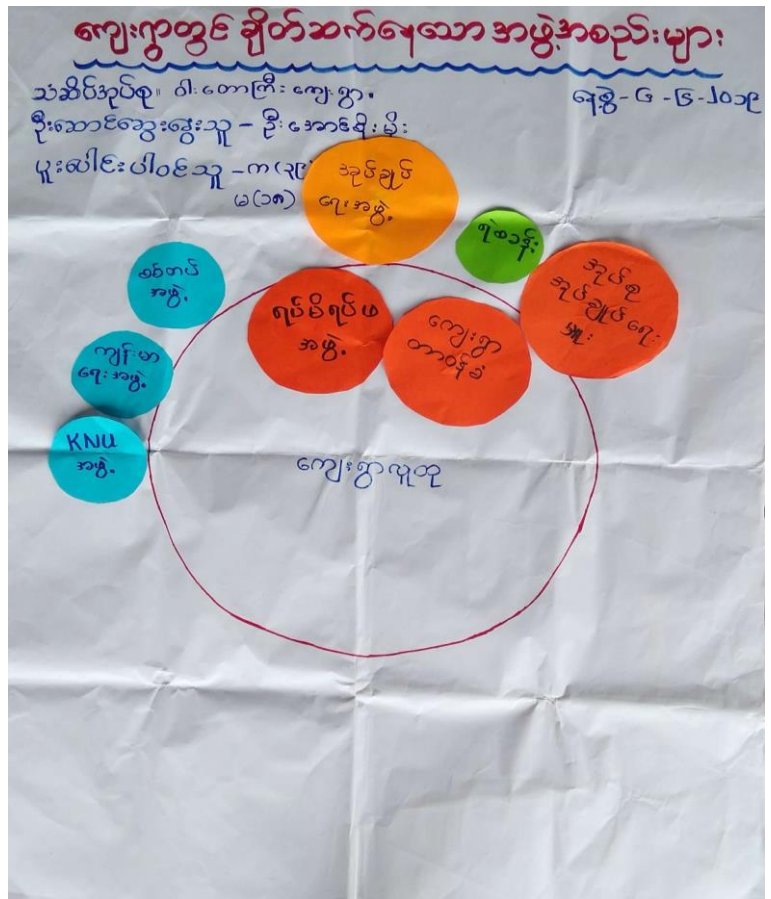 ကျေးရွာတွင် ချိတ်ဆက်နေသော အဖွဲ့အစည်းများ
သံဆိပ်အုပ်စု။ ဝါးတောကြီး ကျေးရွာ.
နေ့စွဲ-၄-၆-၂၀၁၉
ဦးဆောင်ဆွေးနွေးသူ - ဦးအောင်စိုးမိုး
ပူးပေါင်းပါဝင်သူ - က(၃၉)
မ(၁၈)
အုပ်ချုပ်
ရေးအဖွဲ့
ရဲစခန်း
အုပ်စု
အုပ်ချုပ်ရေး
မှူး
စစ်တပ်
အဖွဲ့
ရပ်မိရပ်ဖ
အဖွဲ့
ကျေးရွာ
တာဝန်ခံ
ကျန်းမာ
ရေးအဖွဲ့
KNU
အဖွဲ့
ကျေးရွာလူထု